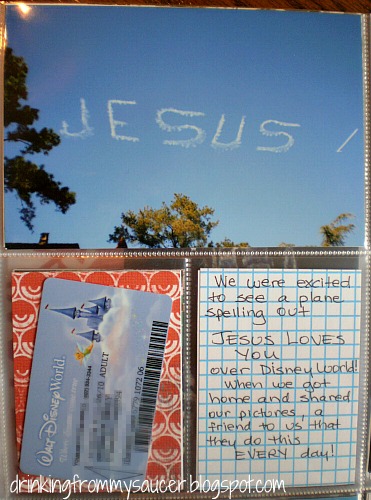 JESUS
We were excited
to see a plane
spelling out
JESUS LOVES
YOU
over Disney World!
When we got
home and shared
our pictures, a
friend to us that
they do this
EVERY day!
WALT DISNEY World
ADULT
drinkingfrommysaucer.blogspot.com